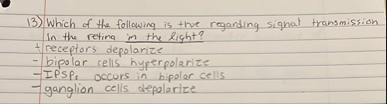 13) Which of the following is true regarding signal transmission
in the retina in the light?
+ receptors depolarize
- bipolar cells hyperpolarize
- IPSPs occurs in bipolar cells
- ganglion cells depolarize